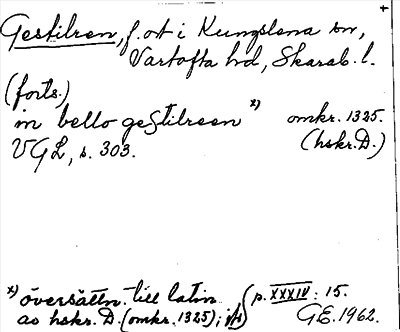 +
Gestilren, f. ort i Kungslena sn,
Vartofta hd, Skarab. l.
(forts.)
in bello gestilreen x) omkr. 1325.
VGL, s. 303. (hskr. D.)
x) översättn. till latin p. XXXIV: 15.
av hskr. D. (omkr. 1325); G.E. 1962.